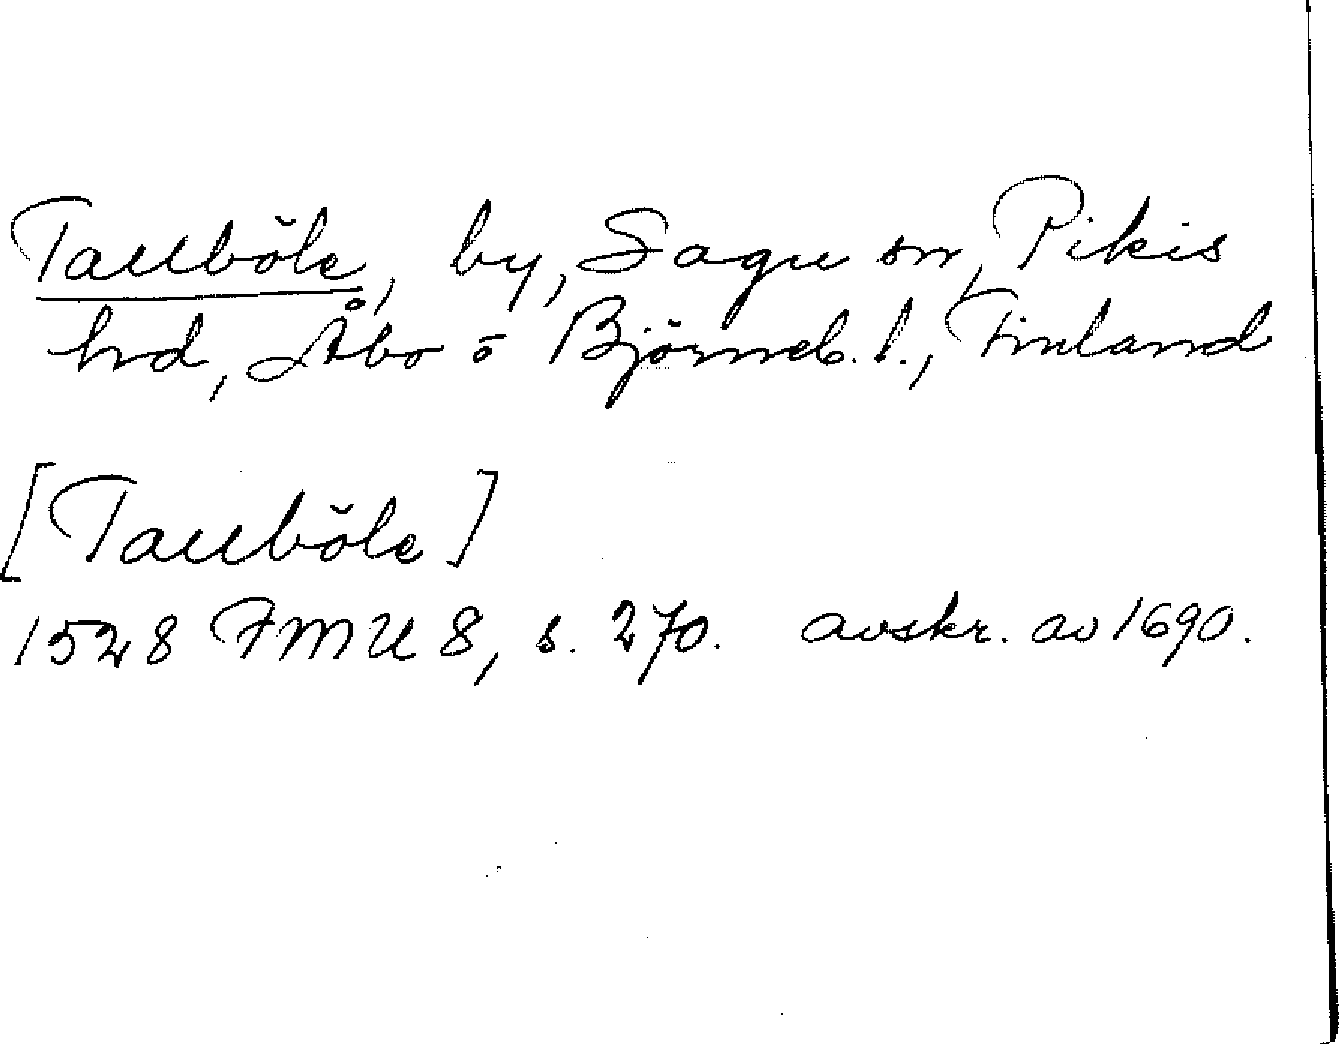 Tallböle, by, Sagu sn, Pikis
hrd, Åbo o Björneb. l., Finland
[Tallböle]
1528 FMU 8, s. 270. avskr. av 1690.